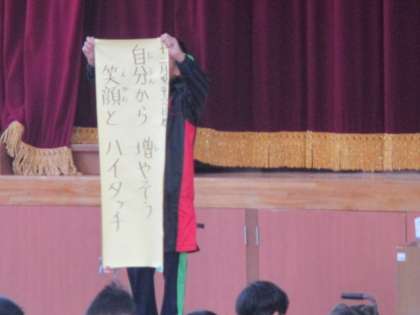 自分から 増やそう
笑顔と ハイタッチ